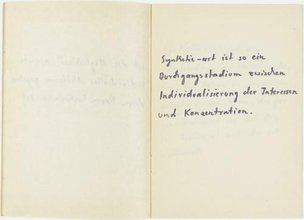 Synthetic-art ist so ein
Durchgangsstadium zwischen
Individualisierung der Interessen
und Konzentration.